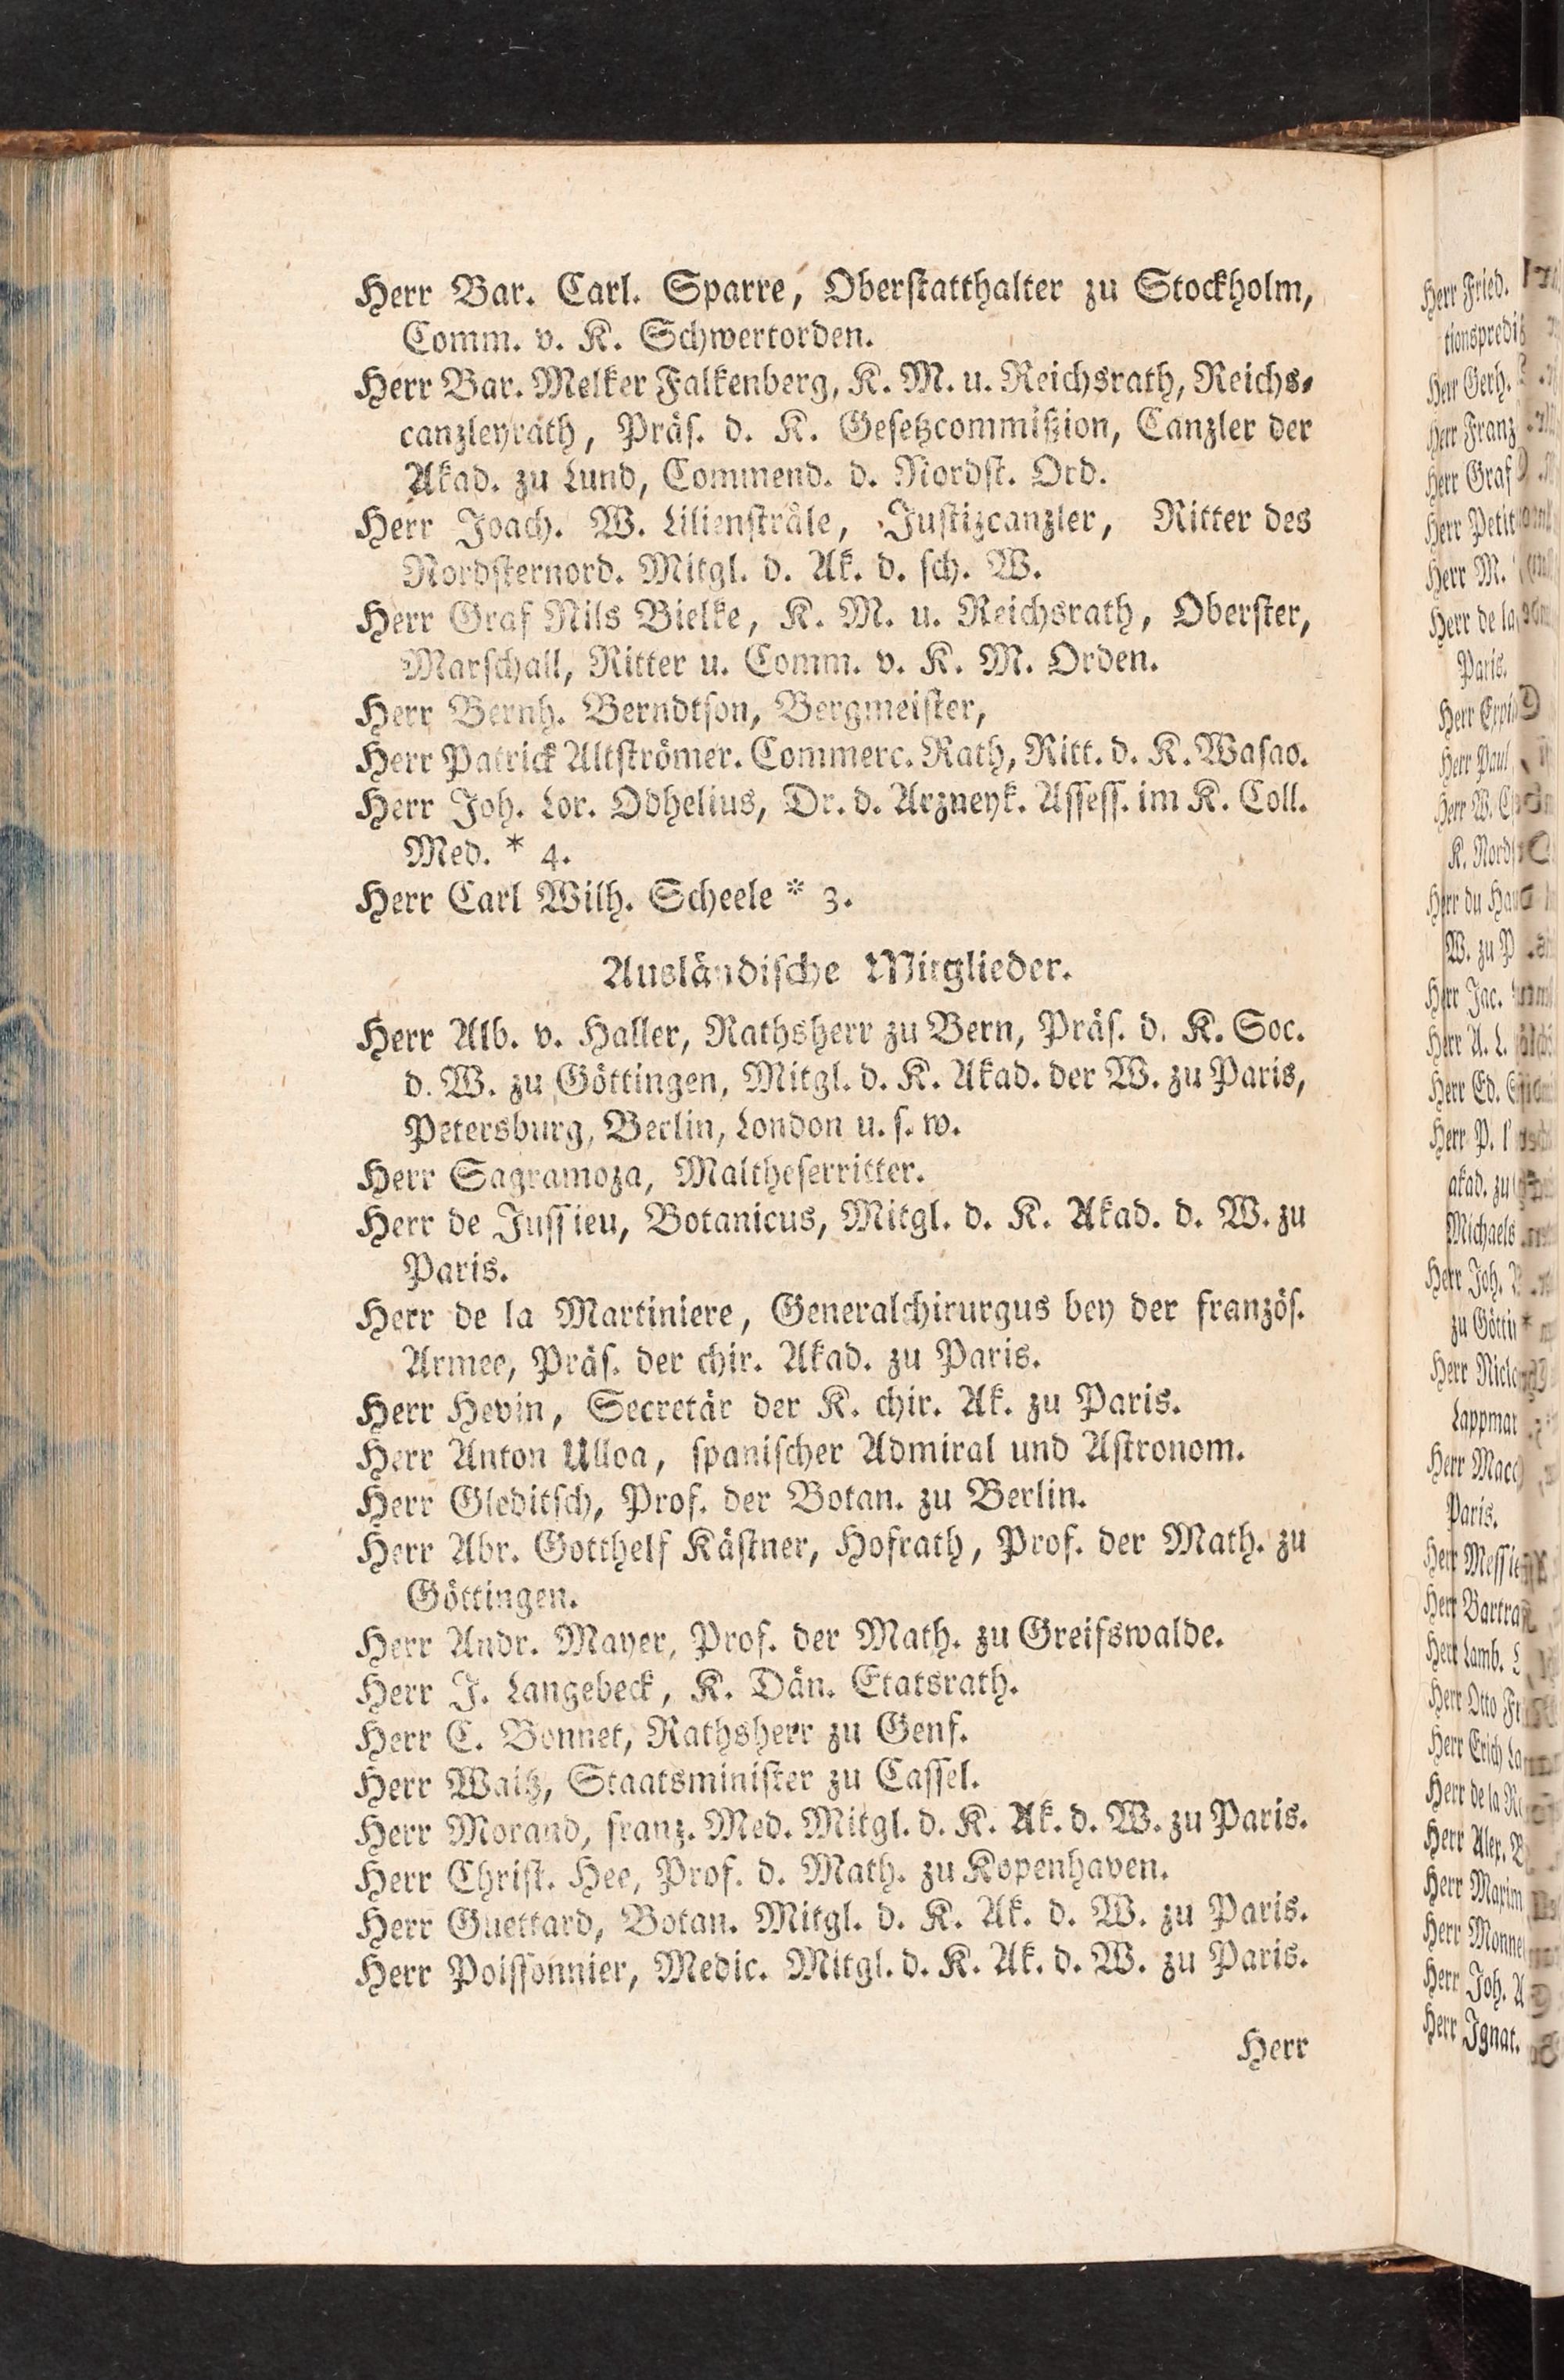 Herr Bar. Carl. Sparre, Oberstatthalter zu Stockholm,
Comm. v. K. Schwertorden.
Herr Bar. Melker Falkenberg, K. M. u. Reichsrath, Reichs-
canzleyrath, Präs. d. K. Gesetzcommißion, Canzler der
Akad. zu Lund, Commend. d. Nordst. Ord.
Herr Joach. W. Liliensträle, Justizcanzler, Ritter des
Nordsternord. Mitgl. d. Ak. d. sch. W.
Herr Graf Nils Bielke, K. M. u. Reichsrath, Oberster,
Marschall, Ritter u. Comm. v. K. M. Orden.
Herr Bernh. Berndtson, Bergmeister,
Herr Patrick Altströmer. Commerc. Rath, Ritt. d. K. Wasao.
Herr Joh. Lor. Odhelius, Dr. d. Arzneyk. Assess. im K. Coll.
Med. * 4.
Herr Carl Wilh. Scheele * 3.
Ausländische Mitglieder.
Herr Alb. v. Haller, Rathsherr zu Bern, Präs. d. K. Soc.
d. W. zu Göttingen, Mitgl. d. K. Akad. der W. zu Paris,
Petersburg, Berlin, London u. s. w.
Herr Sagramoza, Maltheserritter.
Herr de Jussieu, Botanicus, Mitgl. d. K. Akad. d. W. zu
Paris.
Herr de la Martiniere, Generalchirurgus bey der französ.
Armee, Präs. der chir. Akad. zu Paris.
Herr Hevin, Secretär der K. chir. Ak. zu Paris.
Herr Anton Ulloa, spanischer Admiral und Astronom.
Herr Gleditsch, Prof. der Botan. zu Berlin.
Herr Abr. Gotthelf Kästner, Hofrath, Prof. der Math. zu
Göttingen.
Herr Andr. Mayer, Prof. der Math. zu Greifswalde.
Herr J. Langebeck, K. Dän. Etatsrath.
Herr C. Bonnet, Rathsherr zu Genf.
Herr Waitz, Staatsminister zu Cassel.
Herr Morand, franz. Med. Mitgl. d. K. Ak. d. W. zu Paris.
Herr Christ. Hee, Prof. d. Math. zu Kopenhaven.
Herr Guettard, Botan. Mitgl. d. K. Ak. d. W. zu Paris.
Herr Poissonnier, Medic. Mitgl. d. K. Ak. d. W. zu Paris.
Herr
Herr Fried.
Herr Gerh.
Herr Franz
Herr Graf
Herr Petit
Herr M.
Herr de la
Paris.
Herr
Herr Paul
Herr W.
K.
Herr du
W. zu P
Herr Jac.
Herr A. L.
Herr Ed.
Herr P.
akad. zu
Michaels
Herr Joh.
zu
Herr
Lappmar
Herr
Paris.
Herr
Herr
Herr Lamb.
Herr Otto
Herr Erich
Herr de la
Herr Alex.
Herr
Herr
Herr Joh. A
Herr Ignat.